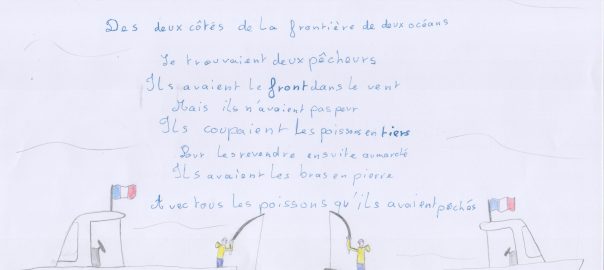 Des deux côtés de la frontière de deux océans
Se trouvaient deux pêcheurs
Ils avaient le front dans le vent
Mais ils n'avaient pas peur
Ils coupaient les poissons en tiers
Pour les revendre ensuite au marché
Ils avaient les bras en pierre
Avec tous les poissons qu'ils avaient pêchés